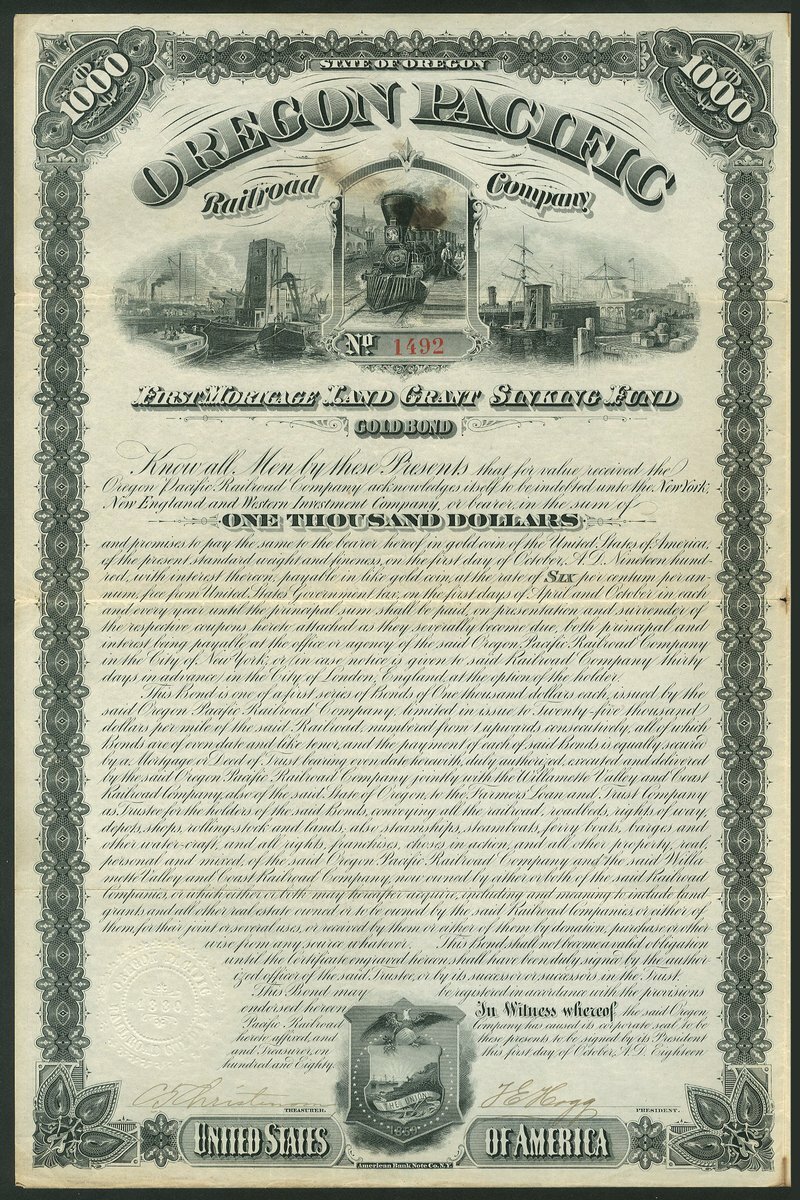 STATE OF OREGON
$1000
$1000
OREGON PACIFIC
Railroad Company
No 1492
FIRST MORTGAGE LAND GRANT SINKING FUND
GOLD BOND
Know all Men by these Presents that for value received the
Oregon Pacific Railroad Company acknowledges itself to be indebted unto the New York,
New England and Western Investment Company, or bearer, in the sum of
ONE THOUSAND DOLLARS
and promises to pay the same to the bearer hereof in gold coin of the United States of America,
of the present standard weight and fineness, on the first day of October, A.D. Nineteen hund-
red, with interest thereon, payable in like gold coin, at the rate of Six per centum per an-
num, free from United States Government tax, on the first days of April and October in each
and every year until the principal sum shall be paid, on presentation and surrender of
the respective coupons hereto attached as they severally become due, both principal and
interest being payable at the office or agency of the said Oregon Pacific Railroad Company
in the City of New York, or (in case notice is given to said Railroad Company thirty
days in advance) in the City of London, England, at the option of the holder.
This Bond is one of a first series of Bonds of One thousand dollars each, issued by the
said Oregon Pacific Railroad Company, limited in issue to Twenty-five thousand
dollars per mile of the said Railroad, numbered from 1 upwards consecutively, all of which
Bonds are of even date and like tenor, and the payment of each of said Bonds is equally secured
by a Mortgage or Deed of Trust bearing even date herewith, duly authorized, executed and delivered
by the said Oregon Pacific Railroad Company jointly with the Willamette Valley and Coast
Railroad Company, also of the said State of Oregon, to the Farmers' Loan and Trust Company
as Trustee for the holders of the said Bonds, conveying all the railroad, roadbeds, rights of way,
depots, shops, rolling-stock and lands; also steamships, steamboats, ferry boats, barges and
other water-craft, and all rights, franchises, choses in action, and all other property, real,
personal and mixed, of the said Oregon Pacific Railroad Company and the said Willa-
mette Valley and Coast Railroad Company, now owned by either or both of the said Railroad
Companies, or which either or both may hereafter acquire, including and meaning to include land
grants and all other real estate owned or to be owned by the said Railroad Companies or either of
them, for their joint or several uses, or received by them or either of them by donation, purchase or other-
wise from any source whatever. This Bond shall not become a valid obligation
until the Certificate engraved hereon shall have been duly signed by the author-
ized officer of the said Trustee, or by its successor or successors in the Trust.
This Bond may be registered in accordance with the provisions
endorsed hereon.
In Witness whereof the said Oregon
Pacific Railroad Company has caused its corporate seal to be
hereto affixed, and these presents to be signed by its President
and Treasurer, on this first day of October, A.D. Eighteen
hundred and Eighty.
OREGON PACIFIC
1880
THE UNION
1859
TREASURER.
T E Hogg
PRESIDENT.
UNITED STATES OF AMERICA
American Bank Note Co. N.Y.